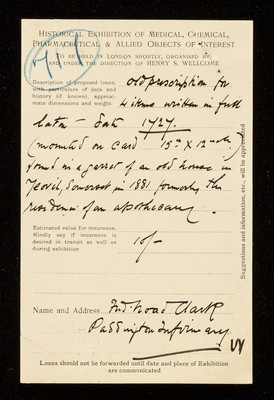 HISTORICAL EXHIBITION OF MEDICAL, CHEMICAL,
PHARMACEUTICAL & ALLIED OBJECTS OF INTEREST
TO BE HELD IN LONDON SHORTLY, ORGANISED BY
AND UNDER THE DIRECTION OF HENRY S. WELLCOME
Description of proposed loans,
with particulars of date and
history (if known), approxi-
mate dimensions and weight
old prescription for
4 items written in full
latin - date 1727.
(mounted on card 15 in X 12 inch)
found in a garret of an old house in
Yeovil, Somerset in 1881 formerly the
residence of an apothecary.
Estimated value for insurance.
Kindly say if insurance is
desired in transit as well as
during exhibition
10/-
Name and Address
Fred Broad Clark
Paddington Infirmary
W
Loans should not be forwarded until date and place of Exhibition
are communicated
Suggestions and information, etc., will be appreciated